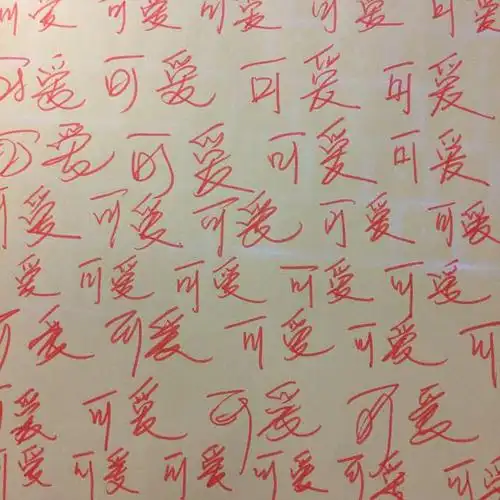 可爱 可爱 可爱 可爱 可爱
可爱 可爱 可爱 可爱
可爱 可爱 可爱 可爱
可爱 可爱 可爱 可爱 可爱
爱 可爱 可爱 可爱 可爱
可爱 可爱 可爱 可爱 可
可爱 可爱 可爱 可爱
可爱 可爱 可爱 可爱 可爱 可爱